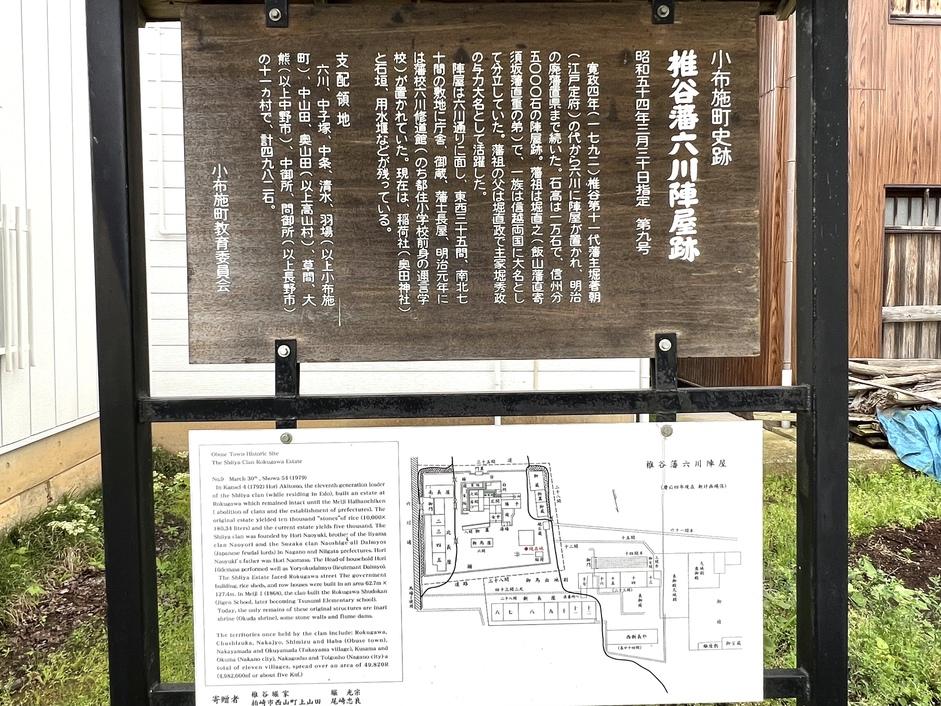 小布施町史跡
椎谷藩六川陣屋跡
昭和五十四年三月三十日指定　第九号
寛政四年(一七九二)椎谷第十一代藩主堀著朝
(江戸定府)の代から六川に陣屋が置かれ、明治
の廃藩置県まで続いた。石高は一万石で、信州分
五〇〇〇石の陣屋跡。藩祖は堀直之(飯山藩直寄
須坂藩直重の弟)で、一族は信越両国に大名とし
て分立していた。藩祖の父は堀直政で主家堀秀政
の与力大名として活躍した。
陣屋は六川通りに面し、東西三十五間、南北七
十間の敷地に庁舎、御蔵、藩士長屋、明治元年に
は藩校六川修道館(のち都住小学校前身の運言学
校)が置かれていた。現在は、稲荷社(奥田神社)
と石垣、用水堰などが残っている。
支配領地
六川、中子塚、中条、清水、羽場(以上小布施
町)、中山田、奥山田(以上高山村)、草間、大
熊(以上中野市)、中御所、問御所(以上長野市)
の十一カ村で、計四九八二石。
小布施町教育委員会
Obuse Town Historic Site
The Shiiya Clan Rokugawa Estate
No.9 March 30th, Showa 54 (1979)
In Kansei 4 (1792) Hori Akitomo, the eleventh generation leader
of the Shiiya clan (while residing in Edo), built an estate at
Rokugawa which remained intact until the Meiji Haihanchiken
(abolition of clans and the establishment of prefectures). The
original estate yielded ten thousand "stones" of rice (10,000×
180.34 liters) and the current estate yields five thousand. The
Shiiya clan was founded by Hori Naoyuki, brother of the Iiyama
clan Naoyori and the Suzaka clan Naoshige all Daimyos
(Japanese feudal lords) in Nagano and Niigata prefectures. Hori
Naoyuki's father was Hori Naomasa. The Head of household Hori
Hidemasa performed well as Yoryokudaimyo (lieutenant Daimyo).
The Shiiya Estate faced Rokugawa street. The government
building, rice sheds, and row houses were built in an area 62.7m×
127.4m. In Meiji 1 (1868), the clan built the Rokugawa Shudokan
(Jigen School, later becoming Tsusumi Elementary school).
Today, the only remains of these original structures are inari
shrine (Okuda shrine), some stone walls and flume dams.
The territories once held by the clan include: Rokugawa,
Chushizuka, Nakajyo, Shimizu and Haba (Obuse town),
Nakayamada and Okuyamada (Takayama village), Kusama and
Okuma (Nakano city), Nakagosho and Toigosho (Nagano city) a
total of eleven villages, spread over an area of 49,820R
椎谷藩六川陣屋
道路
新長屋
西新長屋
寄贈者　椎谷堀家　堀光宗
柏崎市西山町上山田　尾崎忠良